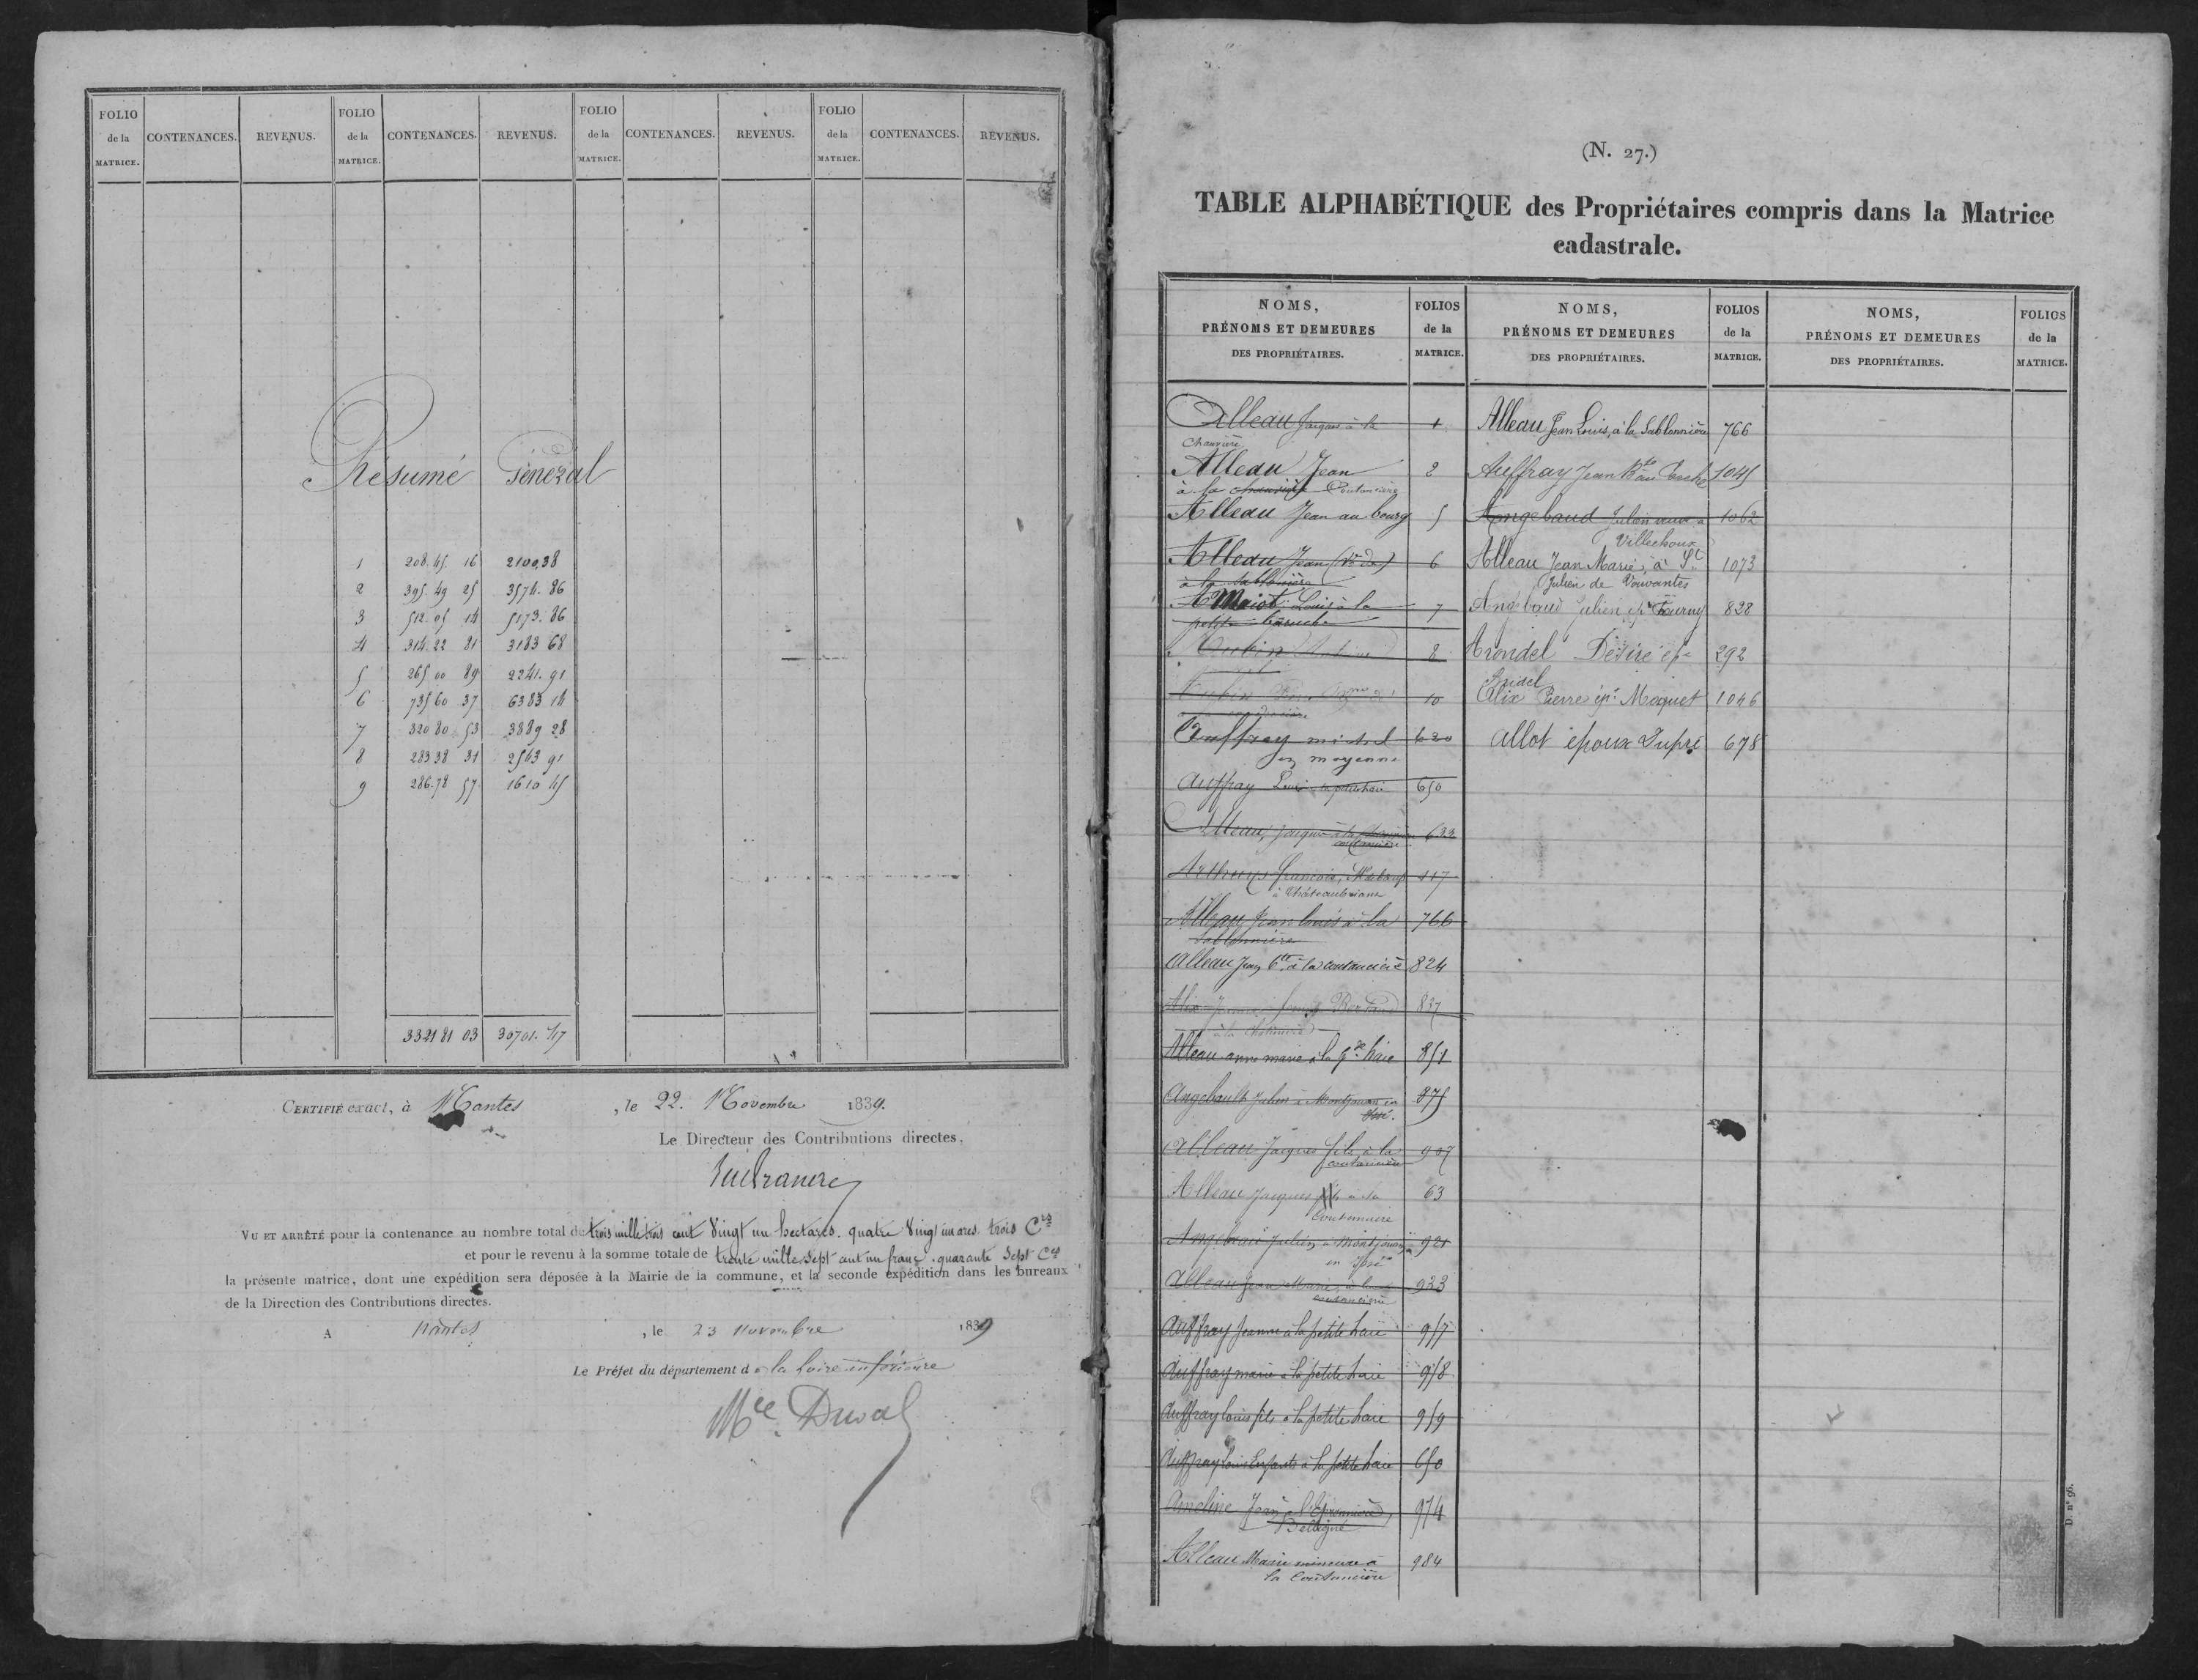 FOLIO de la MATRICE. CONTENANCES. REVENUS. FOLIO de la MATRICE. CONTENANCES. REVENUS. FOLIO de la MATRICE. CONTENANCES. REVENUS. FOLIO de la MATRICE. CONTENANCES. REVENUS.
Résumé Général
1 208.45 16 2100.38
2 395.49 25 3574.86
3 512.05 14 5173.86
4 314.22 81 3183 68
5 265 00 89 2241.91
6 735 60 37 6383 14
7 320 80 53 3889 28
8 283 38 31 2543 91
9 286.78 57 1610 45
3321 81 03 30701.47
CERTIFIÉ exact, à Nantes, le 22. Novembre 1839.
Le Directeur des Contributions directes,
VU ET ARRÊTÉ pour la contenance au nombre total de trois mille trois cent vingt un hectares. quatre vingt un ares. trois Cres
et pour le revenu à la somme totale de trente mille sept cent un franc. quarante sept Ces
la présente matrice, dont une expédition sera déposée à la Mairie de la commune, et la seconde expédition dans les bureaux
de la Direction des Contributions directes.
A Nantes, le 23 novembre 1839
Le Préfet du département de la Loire inférieure
Mce Duval
(N. 27.)
TABLE ALPHABÉTIQUE des Propriétaires compris dans la Matrice
cadastrale.
NOMS, PRÉNOMS ET DEMEURES DES PROPRIÉTAIRES. FOLIOS de la MATRICE. NOMS, PRÉNOMS ET DEMEURES DES PROPRIÉTAIRES. FOLIOS de la MATRICE. NOMS, PRÉNOMS ET DEMEURES DES PROPRIÉTAIRES. FOLIOS de la MATRICE.
Alleau Jacques à la 1
Chauvière
Alleau Jean 2
à la Coutancière
Alleau Jean au bourg 5
Alleau Jean (Ve de) 6
à la Sablonnière
Louis à la 7
petite
Aubin 8
Aubin 10
Auffray michel 620
en mayenne
Auffray Louis la petite haie 650
Alleau, jacques à la 633
coutancière
François, 117
à Châteaubriant
Alleau Jean Louis à la 766
Sablonnière
Alleau Jean Bte à la coutancière 824
Alix 837
Alleau anne marie à la gde haie 851
Angebault Julien à Montjouan en 875
Issé.
Alleau Jacques fils à la 907
coutancière
Alleau Jacques fils à la 63
Coutancière
Angebaud Julien à Montjouan 921
en Issé
Alleau Jean Marie, à la 933
coutancière
Auffray Jeanne à la petite haie 957
Auffray marie à la petite haie 958
Auffray louis fils à la petite haie 959
Auffray louis Enfants à la petite haie 650
Ameline Jean à l'Epronnière, 974
Belligné
Alleau Marie mineure à 984
la Coutancière
Alleau Jean Louis, à la Sablonnière 766
Auffray Jean Bte au 1045
Angebaud Julien veuve à 1062
Villechoux
Alleau Jean Marie, à St 1073
Julien de Vouvantes
Angebaud Julien épx Fourny 828
Arondel Désiré épx 292
Alix Pierre épx Moquet 1046
Allot époux Dupré 678
D. n° 96.